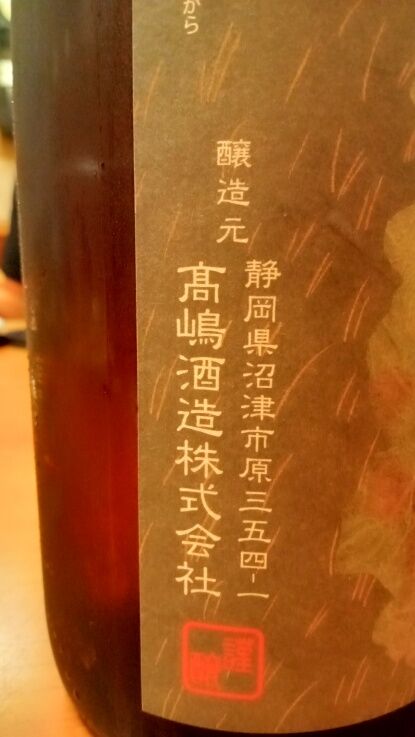 から
醸造元
静岡県沼津市原三五四-一
髙嶋酒造株式会社
謹醸